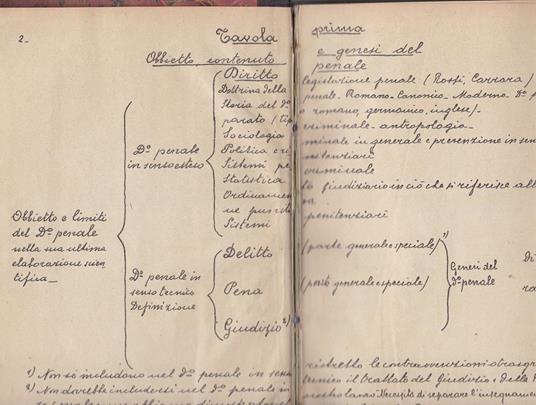 2_ Tavola prima
Obbietto contenuto e genesi del
Diritto penale
Dottrina della legislazione penale (Rossi, Carrara)
Storia del do penale - Romano - Canonico - Moderno - Do
parato / ti o romano, germanico, inglese/-
Sociologia criminale - antropologia -
Politica cri minale in generale e prevenzione in sen
Sistemi pe nitenziari
Statistica criminale
Ordinamen to giudiziario in ciò che si riferisce al
ne pun
Sistemi penitenziari
Do penale
in senso esteso
Obbietto e limiti
del Do penale
nella sua ultima
elaborazione scien
tifica_
Do penale in
senso tecnico
Definizione
Delitto (parte generale e speciale) 1)
Pena (parte generale e speciale)
Giudizio 2)
Generi del
do penale
di
ra
1) Non si includono nel do penale in senso ristretto le contravvenzioni
2) Non dovrebbe includersi nel do penale in tecnico il trattato del Giudizio e della
Necessità di separare l'insegnamen